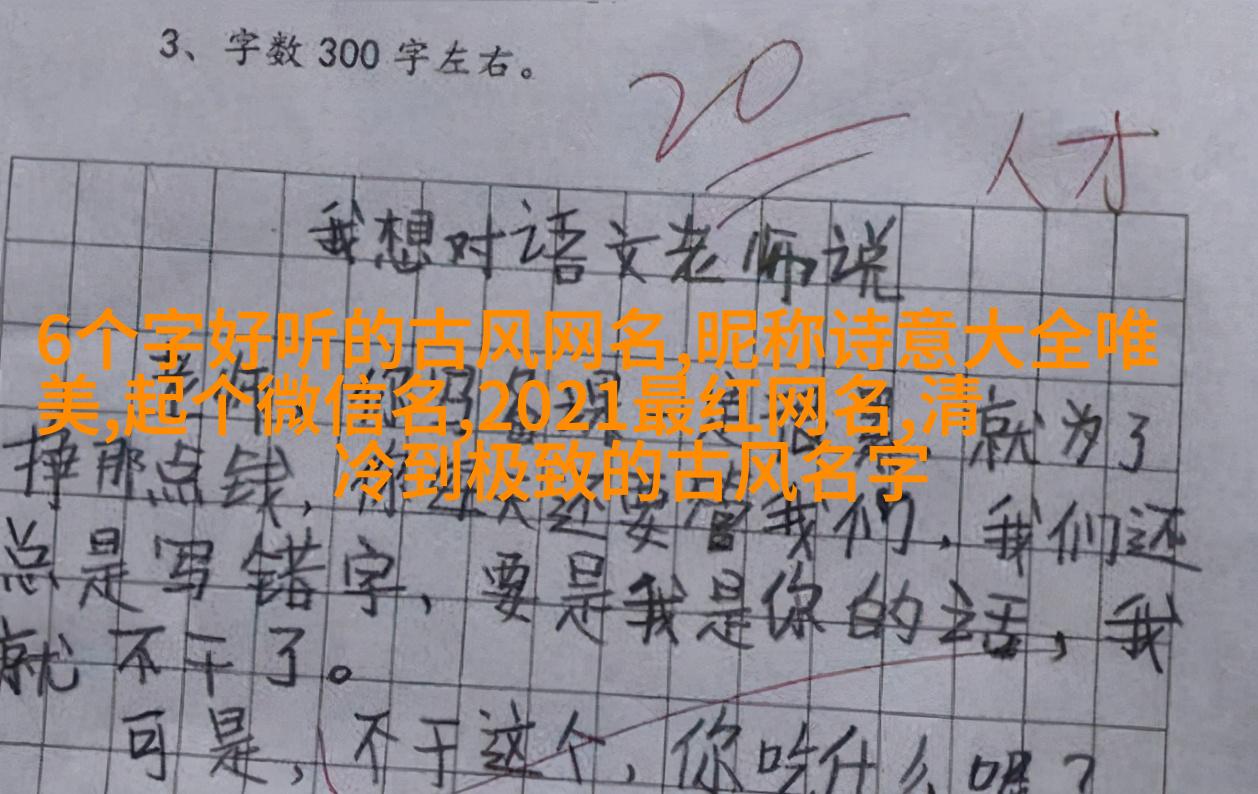 3、字数 300 字左右。
20
人才
我想对语文老师说
6个字好听的古风网名,昵称诗意大全唯
美,起个微信名,2021最红网名,清
就为了
冷到极致的古风名字
挣那点钱,你 还要管我们,我们还
总是写错字,要是我是你的话,我
就不干了。
可是,不干这个,你吃什么呢?